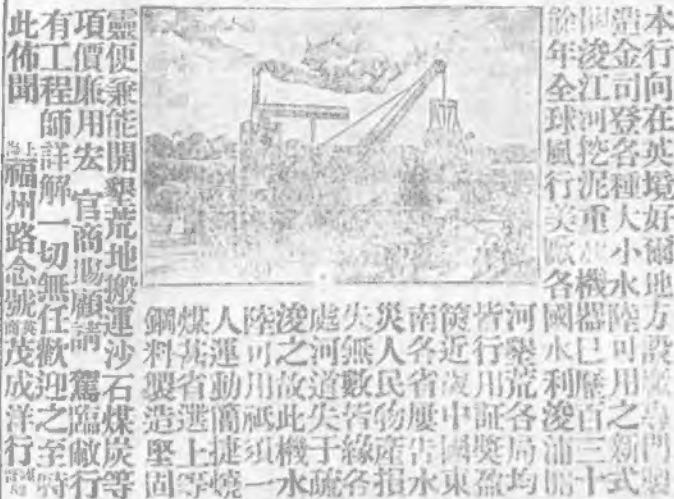 本行向在英境好爾地方設廠專門製
造金司登各種大小水陸可用之新式
浚江河挖泥重機器已歷百三十
餘年全球風行美歐各國水利浚
河墾荒各局均
皆行用証獎盈
篋近歲中國東
南各省屢告水
災人民物產損
失無數皆緣各
處河道失于疏
浚之故此機水
陸可用祗須一
人運動簡捷燒
煤甚省選上等
鋼料製造堅固
靈便兼能開墾荒地搬運沙石煤炭等
項價廉用宏 官商賜顧請 駕臨敝行
有工程師詳解一切無任歡迎之至特
此佈聞 上海福州路念號英商茂成洋行